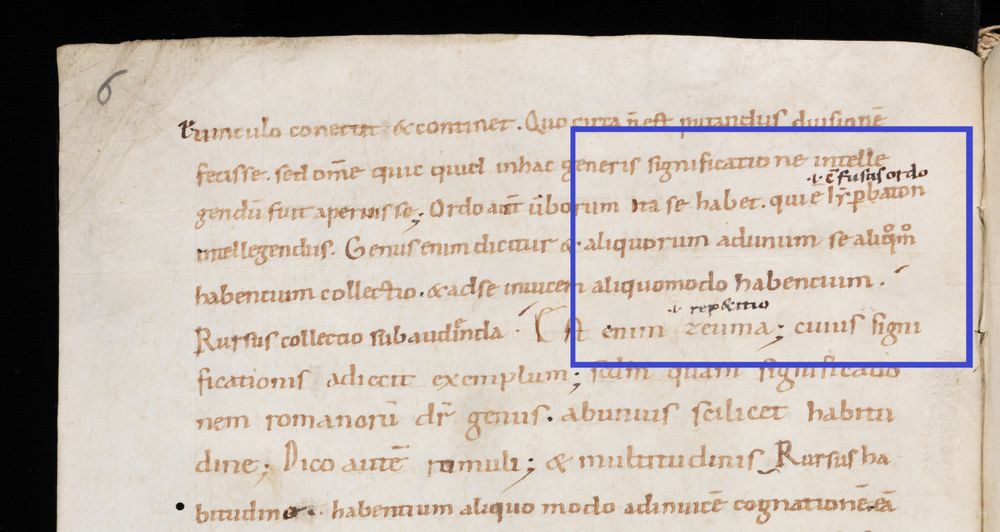 6
tiunculo conectit & continet. Quo circa n̄ est putandus diuisionē
fecisse. sed om̄e quic quid inhac generis significatione intelle
.i. c̄fusus ordo
gendū fuit aperuisse; Ordo aut̄ uerborum ita se habet. qui ē
intellegendus. Genus enim dicitur & aliquorum adunum se aliq̊m̊
habentium collectio. & adse inuicem aliquomodo habentium.
.i. rep&itio
Rursus collectio subaudienda. Est enim zeuma; cuius signi
ficationis adiecit exemplum; sedm̄ quam significatio
nem romanorū dr̄ genus. abunius scilicet habitu
dine; Dico autē romuli; & multitudinis Rursus ha
bitudine. habentium aliquo modo adinuicē cognationē. eā